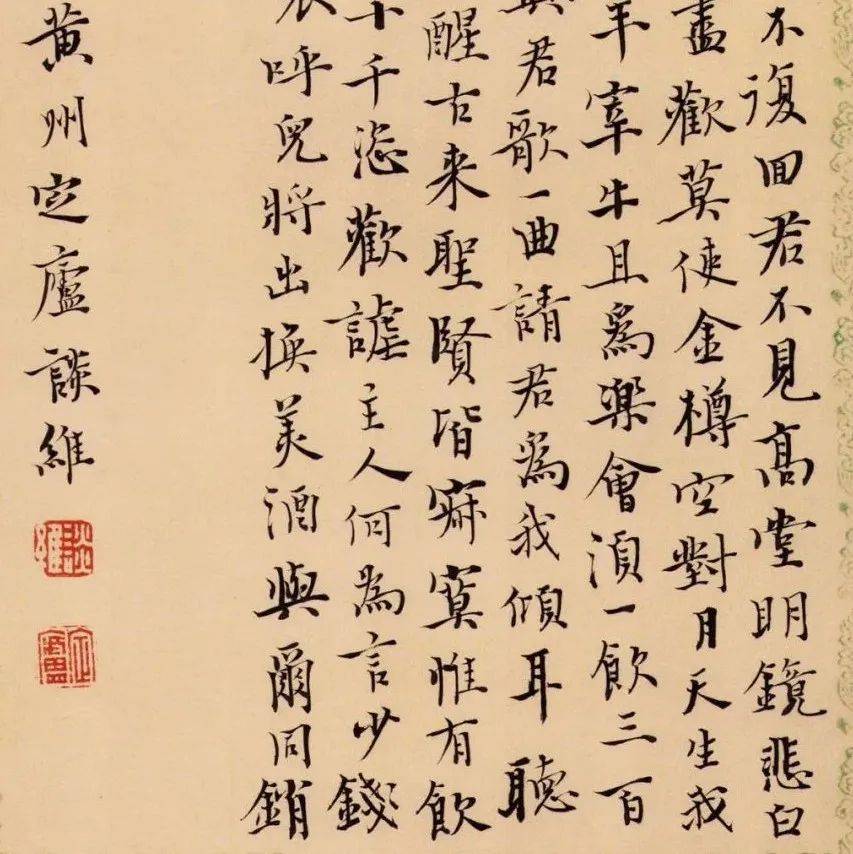 不復回君不見高堂明鏡悲白
盡歡莫使金樽空對月天生我
羊宰牛且為樂會須一飲三百
與君歌一曲請君為我傾耳聽
醒古来聖賢皆寂寞惟有飲
十千恣歡謔主人何為言少錢
呼兒將出換美酒與爾同銷
黄州定廬談維
談維
定廬